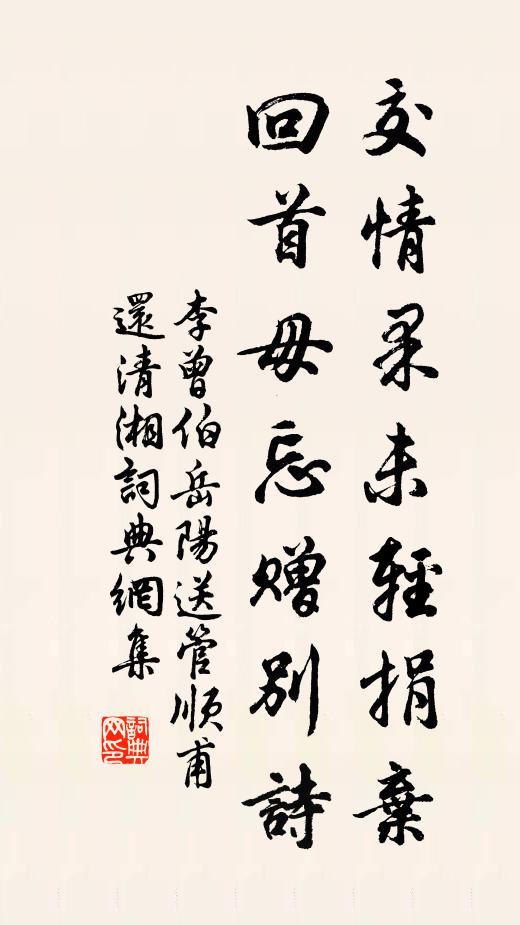 交情果未輕捐棄
回首毋忘贈別詩
李曾伯岳陽送管順甫
還清湘詞典網集
詞典網印